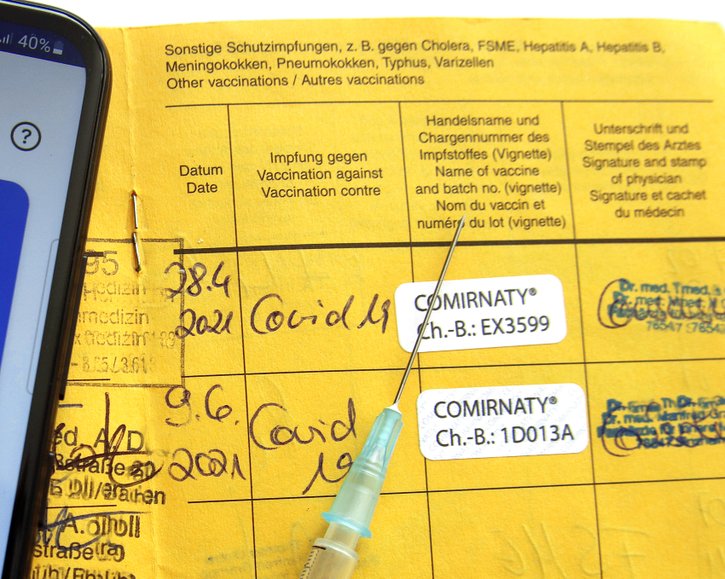 40%
?
Sonstige Schutzimpfungen, z. B. gegen Cholera, FSME, Hepatitis A, Hepatitis B,
Meningokokken, Pneumokokken, Typhus, Varizellen
Other vaccinations / Autres vaccinations
Datum
Date
Impfung gegen
Vaccination against
Vaccination contre
Handelsname und
Chargennummer des
Impfstoffes (Vignette)
Name of vaccine
and batch no. (vignette)
Nom du vaccin et
numéro du lot (vignette)
Unterschrift und
Stempel des Arztes
Signature and stamp
of physician
Signature et cachet
du médecin
28.4
2021
Covid 19
COMIRNATY®
Ch.-B.: EX3599
Dr. med.
Dr. med.
9.6.
2021
Covid
19
COMIRNATY®
Ch.-B.: 1D013A